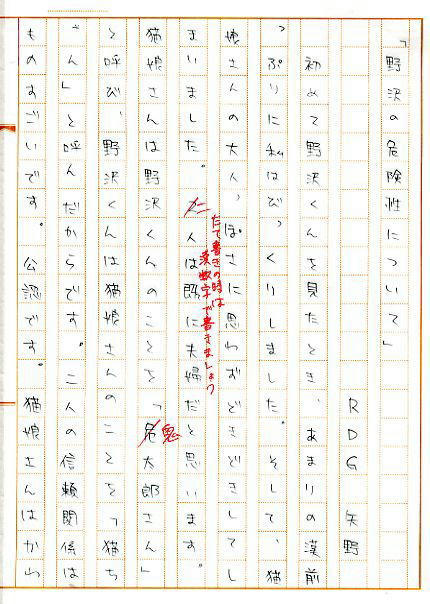 「野沢の危険性について」
RDG 矢野
初めて野沢くんを見たとき、あまりの漢前
っぷりに私はびっくりしました。そして、猫
娘さんの大人っぽさに思わずどきどきしてし
まいました。二人は既に夫婦だと思います。
たて書きの時は
漢数字で書きましょう
猫娘さんは野沢くんのことを「鬼太郎さん」
と呼び、野沢くんは猫娘さんのことを「猫ち
ゃん」と呼んだからです。二人の信頼関係は
ものすごいです。公認です。猫娘さんはかわ